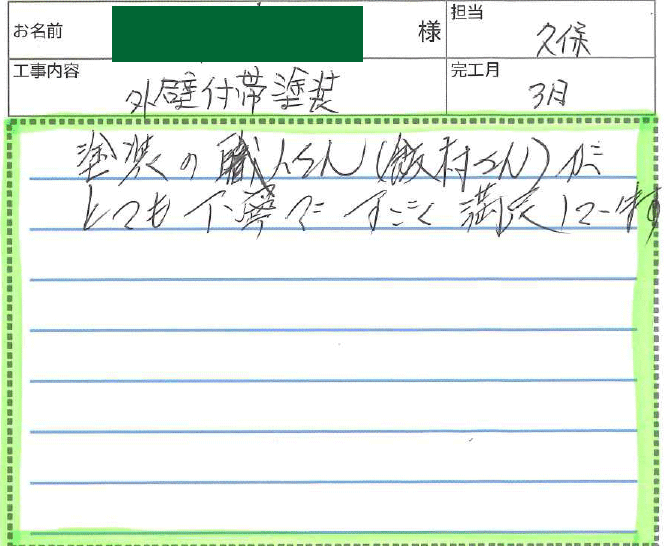 お名前 様 担当 久保
工事内容 外壁付帯塗装 完工月 3月
塗装の職人さん(飯村さん)が
とても丁寧ですごく満足しています